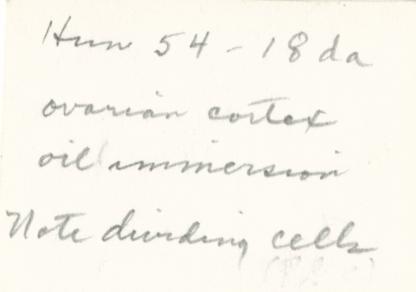 Hun 54 - 18 da
ovarian cortex
oil immersion
Note dividing cells